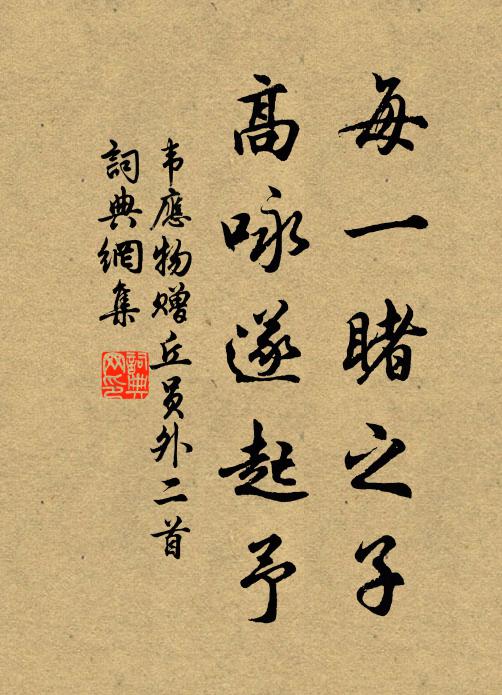 每一睹之子
高咏遂起予
韦應物赠丘员外二首
詞典網集
詞典
网印